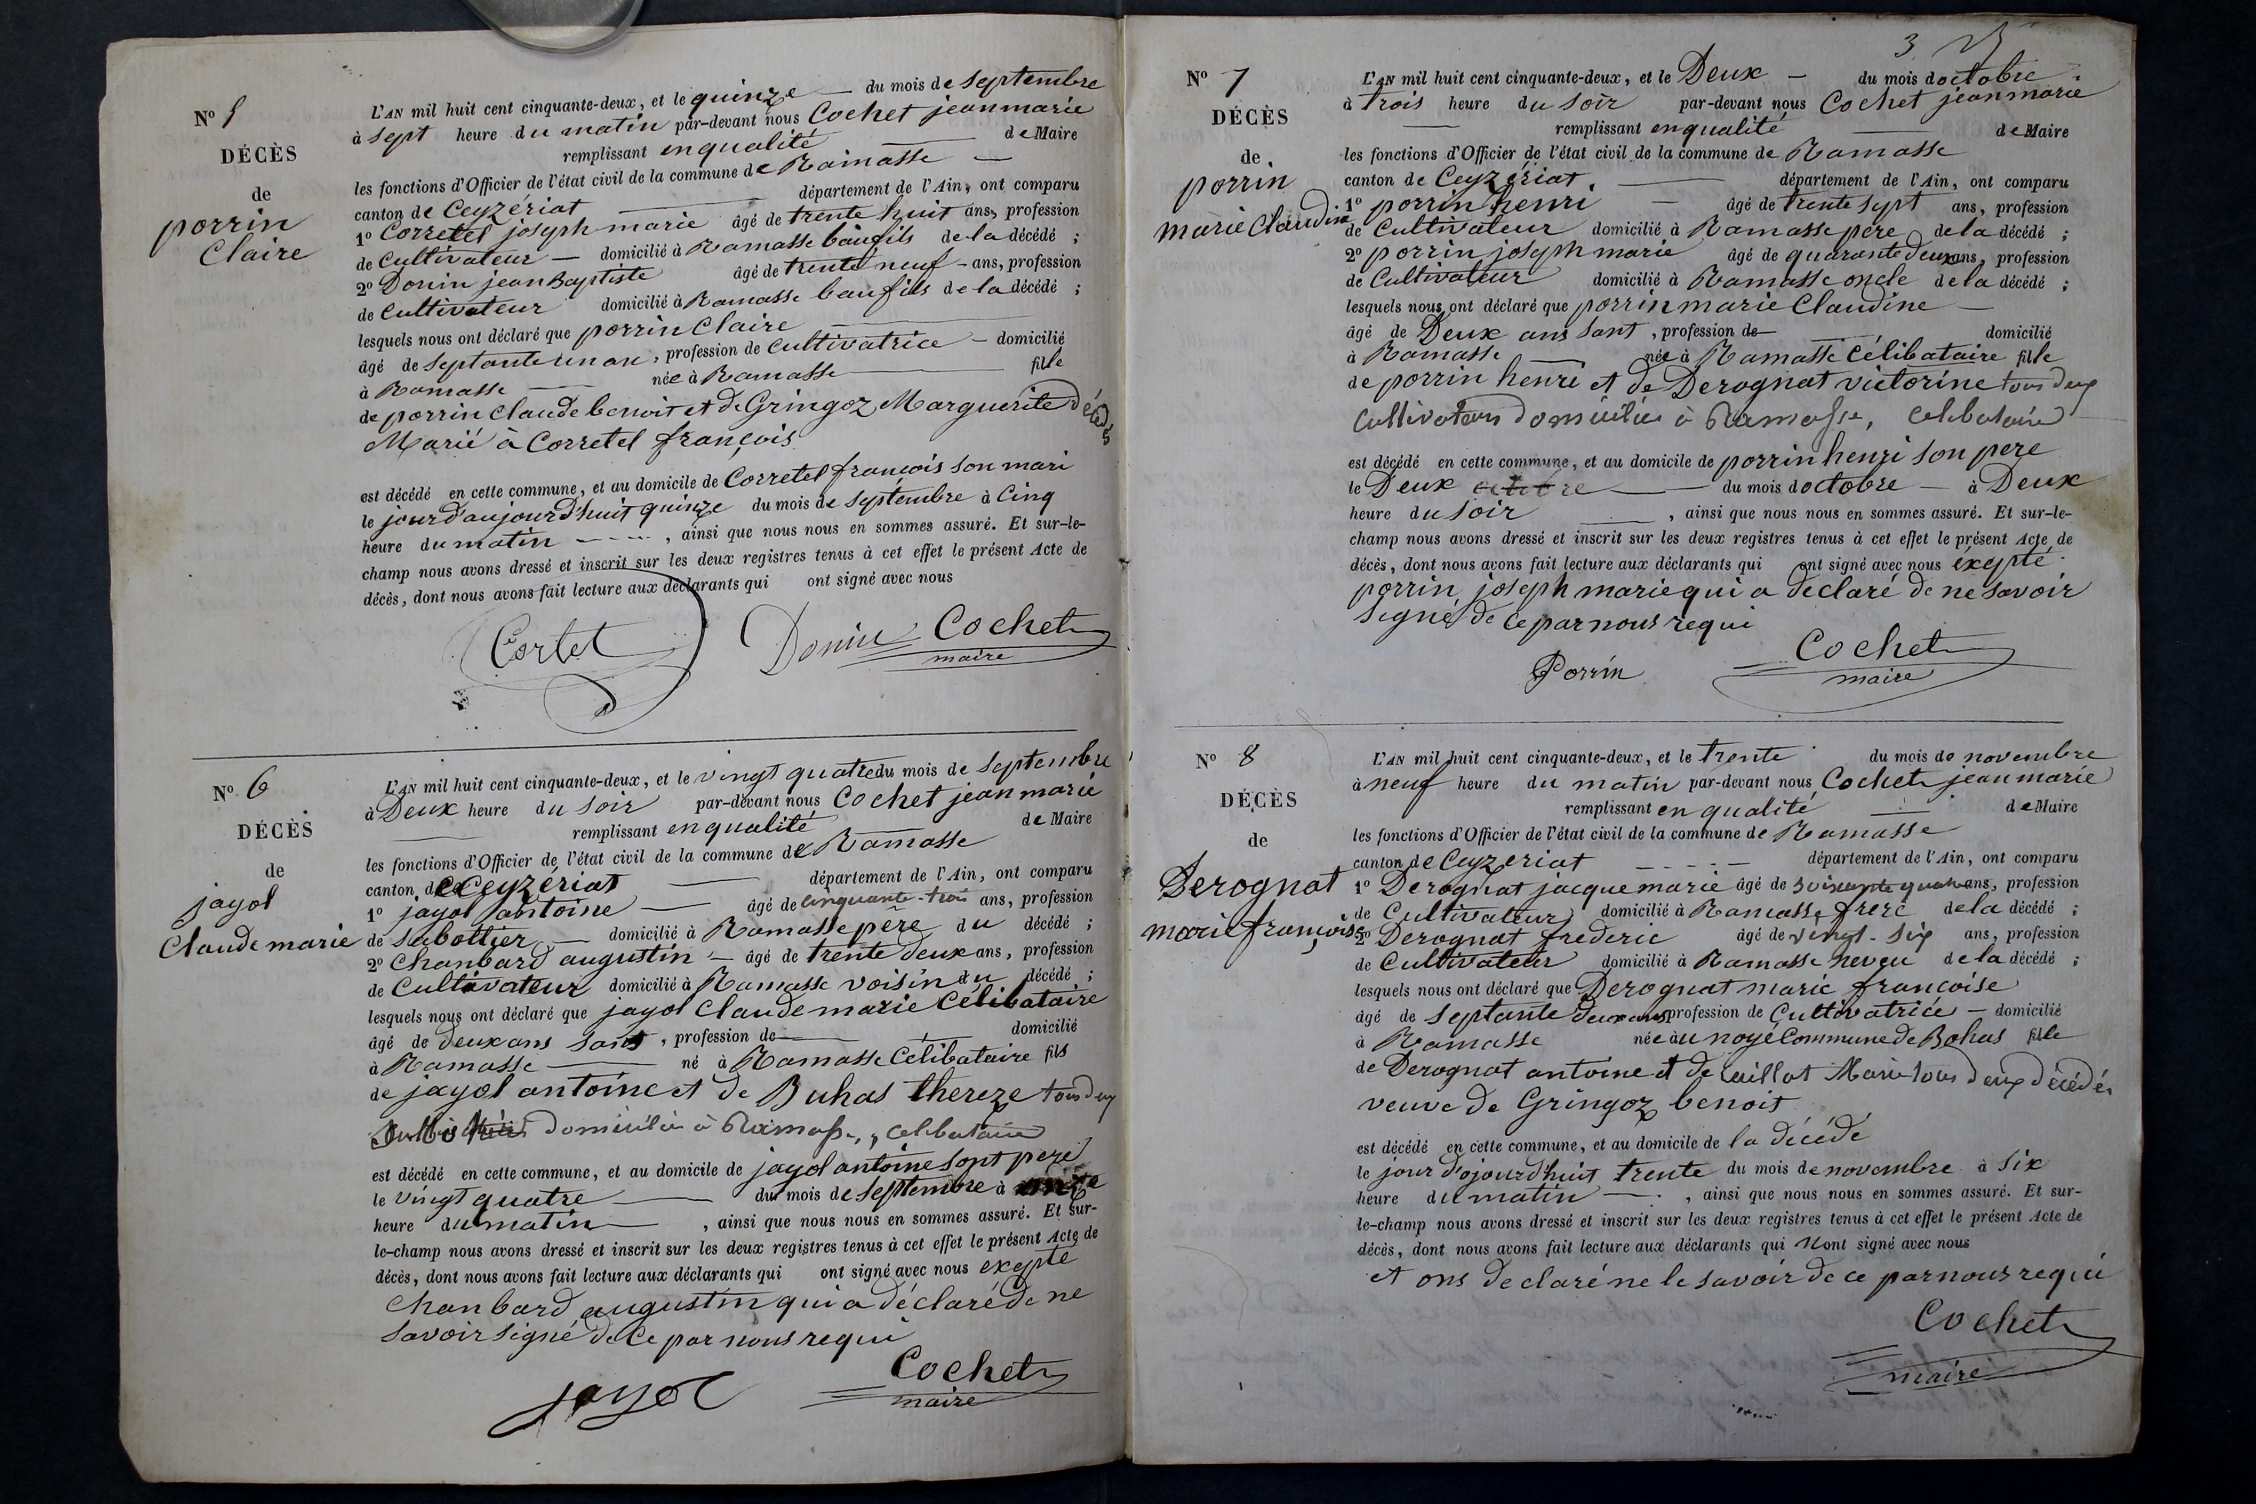 Nº 5
DÉCÈS
de
porrin
Claire
L'AN mil huit cent cinquante-deux, et le quinze — du mois de septembre
à sept heure du matin par-devant nous Cochet jean marie
remplissant en qualité — de Maire
les fonctions d'Officier de l'état civil de la commune de Ramasse —
canton de Ceyzériat — département de l'Ain, ont comparu
1º Corretel joseph marie âgé de trente huit ans, profession
de Cultivateur — domicilié à Ramasse baufils de la décédé ;
2º Donin jean Baptiste âgé de trente neuf - ans, profession
de Cultivateur domicilié à Ramasse baufils de la décédé ;
lesquels nous ont déclaré que porrin Claire —
âgé de septante un an, profession de Cultivatrice — domicilié
à Ramasse — née à Ramasse — fille
de porrin Claude benoit et de Gringoz Marguerite décédés
Marié à Corretel françois
est décédé en cette commune, et au domicile de Corretel françois son mari
le jour d'aujourd'huit quinze du mois de septembre à Cinq
heure du matin — , ainsi que nous nous en sommes assuré. Et sur-le-
champ nous avons dressé et inscrit sur les deux registres tenus à cet effet le présent Acte de
décès, dont nous avons fait lecture aux déclarants qui ont signé avec nous
Cortet Donin Cochet
maire
Nº 6
DÉCÈS
de
jayol
Claude marie
L'AN mil huit cent cinquante-deux, et le vingt quatre du mois de septembre
à Deux heure du soir par-devant nous Cochet jean marie
— remplissant en qualité de Maire
les fonctions d'Officier de l'état civil de la commune de Ramasse
canton de Ceyzériat — département de l'Ain, ont comparu
1º jayol antoine — âgé de cinquante-trois ans, profession
de sabottier — domicilié à Ramasse père du décédé ;
2º Chanbard augustin — âgé de trente deux ans, profession
de Cultivateur domicilié à Ramasse voisin du décédé ;
lesquels nous ont déclaré que jayol Claude marie Célibataire
âgé de deux ans sant, profession de — domicilié
à Ramasse — né à Ramasse Célibataire fils
de jayol antoine et de Buhas thereze tous deux
domiciliés à Ramasse, celibataire
est décédé en cette commune, et au domicile de jayol antoine sont pere
le vingt quatre — du mois de septembre à
heure du matin — , ainsi que nous nous en sommes assuré. Et sur-
le-champ nous avons dressé et inscrit sur les deux registres tenus à cet effet le présent Acte de
décès, dont nous avons fait lecture aux déclarants qui ont signé avec nous exepté
Chanbard augustin qui a déclaré de ne
savoir signé de Ce par nous requi
jayol Cochet
maire
3
Nº 7
DÉCÈS
de
porrin
marie Claudine
L'AN mil huit cent cinquante-deux, et le Deux — du mois d octobre
à trois heure du soir par-devant nous Cochet jean marie
— remplissant en qualité — de Maire
les fonctions d'Officier de l'état civil de la commune de Ramasse
canton de Ceyzériat — département de l'Ain, ont comparu
1º porrin henri — âgé de trente sept ans, profession
de Cultivateur domicilié à Ramasse père de la décédé ;
2º porrin joseph marie âgé de quarante deux ans, profession
de Cultivateur domicilié à Ramasse oncle de la décédé ;
lesquels nous ont déclaré que porrin marie Claudine —
âgé de Deux ans sant, profession de — domicilié
à Ramasse — née à Ramasse Célibataire fille
de porrin henri et de Derognat victorine tous deux
Cultivateurs domiciliés à Ramasse, celibataire
est décédé en cette commune, et au domicile de porrin henri son pere
le Deux octobre — du mois d octobre — à Deux
heure du soir — , ainsi que nous nous en sommes assuré. Et sur-le-
champ nous avons dressé et inscrit sur les deux registres tenus à cet effet le présent Acte de
décès, dont nous avons fait lecture aux déclarants qui ont signé avec nous éxepté
porrin joseph marie qui a declaré de ne savoir
signé de Ce par nous requi
Porrin Cochet
maire
Nº 8
DÉCÈS
de
Derognat
marie françoise
L'AN mil huit cent cinquante-deux, et le trente du mois de novembre
à neuf heure du matin par-devant nous Cochet jean marie
remplissant en qualité — de Maire
les fonctions d'Officier de l'état civil de la commune de Ramasse
canton de Ceyzeriat — département de l'Ain, ont comparu
1º Derognat jacque marie âgé de soixante quatre ans, profession
de Cultivateur domicilié à Ramasse frere de la décédé ;
2º Derognat frederic âgé de vingt-six ans, profession
de Cultivateur domicilié à Ramasse neveu de la décédé ;
lesquels nous ont déclaré que Derognat marie francoise
âgé de septante deux ans, profession de Cultivatrice — domicilié
à Ramasse née au noyé Commune de Bohas fille
de Derognat antoine et de Cuillot Marie tous deux décédés
veuve de Gringoz benoit
est décédé en cette commune, et au domicile de la décédé
le jour d'ojourd'huit trente du mois de novembre à six
heure du matin — , ainsi que nous nous en sommes assuré. Et sur-
le-champ nous avons dressé et inscrit sur les deux registres tenus à cet effet le présent Acte de
décès, dont nous avons fait lecture aux déclarants qui n'ont signé avec nous
et ons declaré ne le savoir de ce par nous requi
Cochet
maire